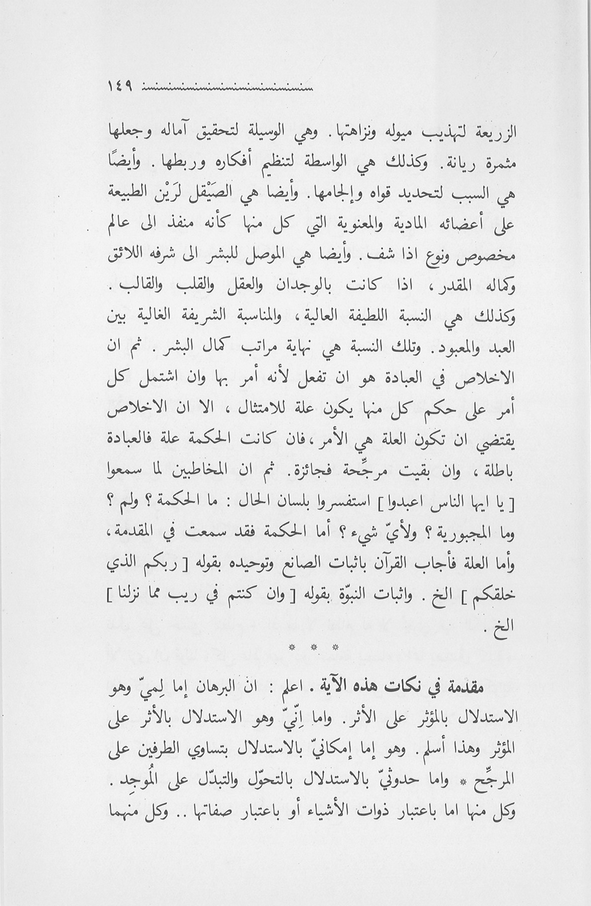 ١٤٩
الزريعة لتهذيب ميوله ونزاهتها. وهي الوسيلة لتحقيق آماله وجعلها
مثمرة ريانة. وكذلك هي الواسطة لتنظيم أفكاره وربطها. وأيضًا
هي السبب لتحديد قواه وإلجامها. وأيضا هي الصَيْقل لرَيْن الطبيعة
على أعضائه المادية والمعنوية التي كل منها كأنه منفذ الى عالم
مخصوص ونوع اذا شف. وأيضا هي الموصل للبشر الى شرفه اللائق
وكماله المقدر، اذا كانت بالوجدان والعقل والقلب والقالب.
وكذلك هي النسبة اللطيفة العالية، والمناسبة الشريفة الغالية بين
العبد والمعبود. وتلك النسبة هي نهاية مراتب كمال البشر. ثم ان
الاخلاص في العبادة هو ان تفعل لأنه أمر بها وان اشتمل كل
أمر على حكم كل منها يكون علة للامتثال، الا ان الاخلاص
يقتضي ان تكون العلة هي الأمر، فان كانت الحكمة علة فالعبادة
باطلة، وان بقيت مرجِّحة فجائزة. ثم ان المخاطبين لما سمعوا
[يا ايها الناس اعبدوا] استفسروا بلسان الحال: ما الحكمة؟ ولم؟
وما المجبورية؟ ولأيّ شيء؟ أما الحكمة فقد سمعت في المقدمة،
وأما العلة فأجاب القرآن باثبات الصانع وتوحيده بقوله [ربكم الذي
خلقكم] الخ. واثبات النبوّة بقوله [وان كنتم في ريب مما نزلنا]
الخ.
* * *
مقدمة في نكات هذه الآية. اعلم: ان البرهان إما لِميّ وهو
الاستدلال بالمؤثر على الأثر. واما اِنّيّ وهو الاستدلال بالأثر على
المؤثر وهذا أسلم. وهو إما إمكانيّ بالاستدلال بتساوي الطرفين على
المرجِّح * واما حدوثيّ بالاستدلال بالتحوّل والتبدّل على المُوجِد.
وكل منها اما باعتبار ذوات الأشياء أو باعتبار صفاتها.. وكل منهما